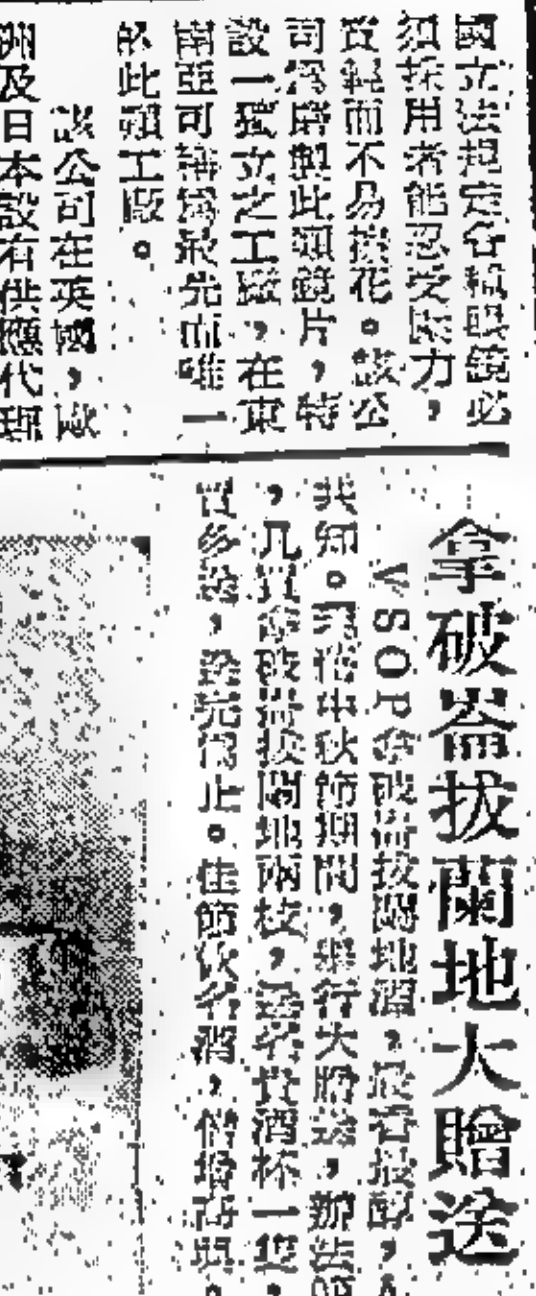 國立法規定各種眼鏡必
須採用者能忍受壓力,
質輕而不易損花。該公
司為磨製此類鏡片,特
設一獨立之工廠,在東
南亞可謂為最先而唯一
的此類工廠。
該公司在英國,歐
洲及日本設有供應代理
拿破崙拔蘭地大贈送
VSOP拿破崙拔蘭地酒,最香最醇,人
共知。現值中秋節期間,舉行大贈送,辦法
,凡買拿破崙拔蘭地兩枝,送名貴酒杯一隻,
買多送,送完為止。佳節飲名酒,倍增高興。